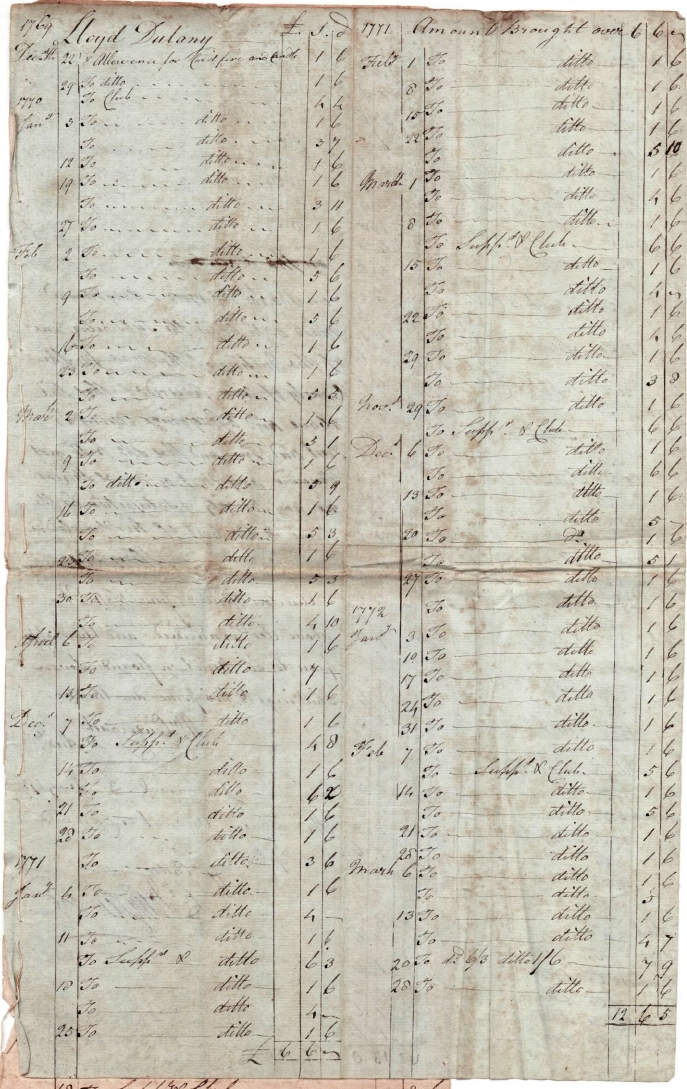 1769 Lloyd Dulany £. S. d
Decr 22 Allowance for Card fire and 1 6
29 To ditto 1 6
1770 To Club 4 4
Jany 5 To ditto 1 6
To ditto 3 7
12 To ditto 1 6
19 To ditto 1 6
To ditto 3 11
27 To ditto 1 6
Feb 2 To ditto 1 6
To ditto 5 6
9 To ditto 1 6
To ditto 5 6
16 To ditto 1 6
23 To ditto 1 6
To ditto 5 5
March 2 To ditto 1 6
To ditto 5 1
9 To ditto 1 6
To ditto ditto 5 9
16 To ditto 1 6
To ditto 5 3
23 To ditto 1 6
To ditto 5 3
30 To ditto 1 6
To ditto 4 10
April 6 To ditto 1 6
To ditto 7 -
13 To ditto 1 6
Decr 7 To ditto 1 6
To Suppr & Club 4 8
14 To ditto 1 6
To ditto 6 2
21 To ditto 1 6
28 To ditto 1 6
1771 To ditto 3 6
Jany 4 To ditto 1 6
To ditto 4 -
11 To ditto 1 6
To Suppr & ditto 6 3
18 To ditto 1 6
To ditto 4 -
25 To ditto 1 6
£ 6 6 -
1771 Amount Brought over 6 6 -
Feby 1 To ditto 1 6
8 To ditto 1 6
15 To ditto 1 6
22 To ditto 1 6
To ditto 5 10
March 1 To ditto 1 6
To ditto 4 6
8 To ditto 1 6
To Suppr & Club 6 6
15 To ditto 1 6
To ditto 4 -
22 To ditto 1 6
To ditto 4 6
29 To ditto 1 6
To ditto 3 8
Novr 29 To ditto 1 6
To Suppr & Club 6 6
Decr 6 To ditto 1 6
To ditto 6 6
13 To ditto 1 6
To ditto 5 -
20 To Do 1 6
To ditto 5 1
27 To ditto 1 6
1772 To ditto 1 6
Jany 3 To ditto 1 6
10 To ditto 1 6
17 To ditto 1 6
24 To ditto 1 6
31 To ditto 1 6
Feb 7 To ditto 1 6
To Suppr & Club 5 6
14 To ditto 1 6
To ditto 5 6
21 To ditto 1 6
28 To ditto 1 6
March 6 To ditto 1 6
To ditto 5
13 To ditto 1 6
To ditto 4 7
20 To do 6/3 ditto 1/6 7 9
28 To ditto 1 6
12 6 5